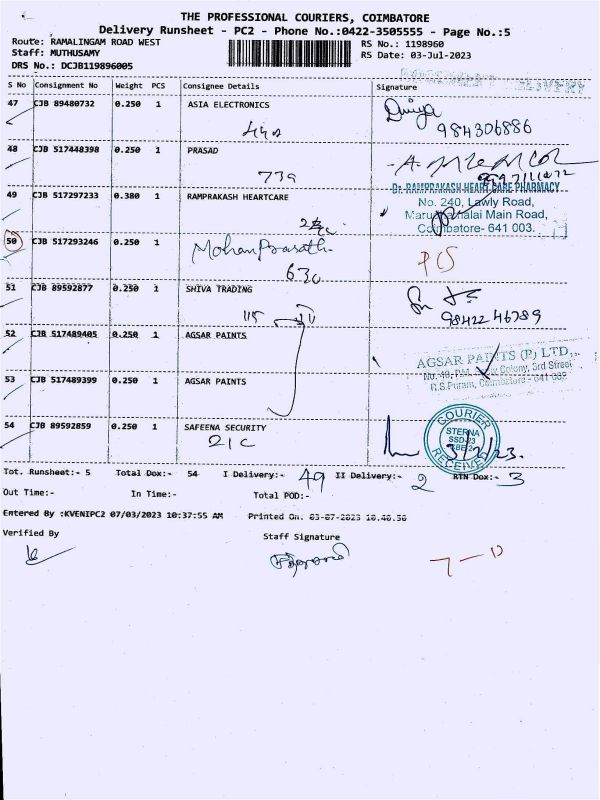 THE PROFESSIONAL COURIERS, COIMBATORE
Delivery Runsheet - PC2 - Phone No.:0422-3505555 - Page No.:5
Route: RAMALINGAM ROAD WEST
RS No.: 1198960
Staff: MUTHUSAMY
RS Date: 03-Jul-2023
DRS No.: DCJB119896005
S No Consignment No Weight PCS Consignee Details Signature
47 CJB 89480732 0.250 1 ASIA ELECTRONICS
984306886
48 CJB 517448398 0.250 1 PRASAD
773
49 CJB 517297233 0.380 1 RAMPRAKASH HEARTCARE
Dr. RAMPRAKASH HEART CARE PHARMACY
No. 240, Lawly Road,
Marudhamalai Main Road,
Coimbatore- 641 003.
50 CJB 517293246 0.250 1 Mohan Prasath
630
PCS
51 CJB 89592877 0.250 1 SHIVA TRADING
115
98422 46789
52 CJB 517489405 0.250 1 AGSAR PAINTS
AGSAR PAINTS (P) LTD.,
Colony, 3rd Street
R.S.Puram, Coimbatore - 641 002
53 CJB 517489399 0.250 1 AGSAR PAINTS
54 CJB 89592859 0.250 1 SAFEENA SECURITY
21C
COURIER
STERNA
RECEIVED
3/7/23.
Tot. Runsheet:- 5 Total Dox:- 54 I Delivery:- 49 II Delivery:- 2 RTN Dox:- 3
Out Time:- In Time:- Total POD:-
Entered By :KVENIPC2 07/03/2023 10:37:55 AM Printed On. 03-07-2023 10.40.50
Verified By
Staff Signature